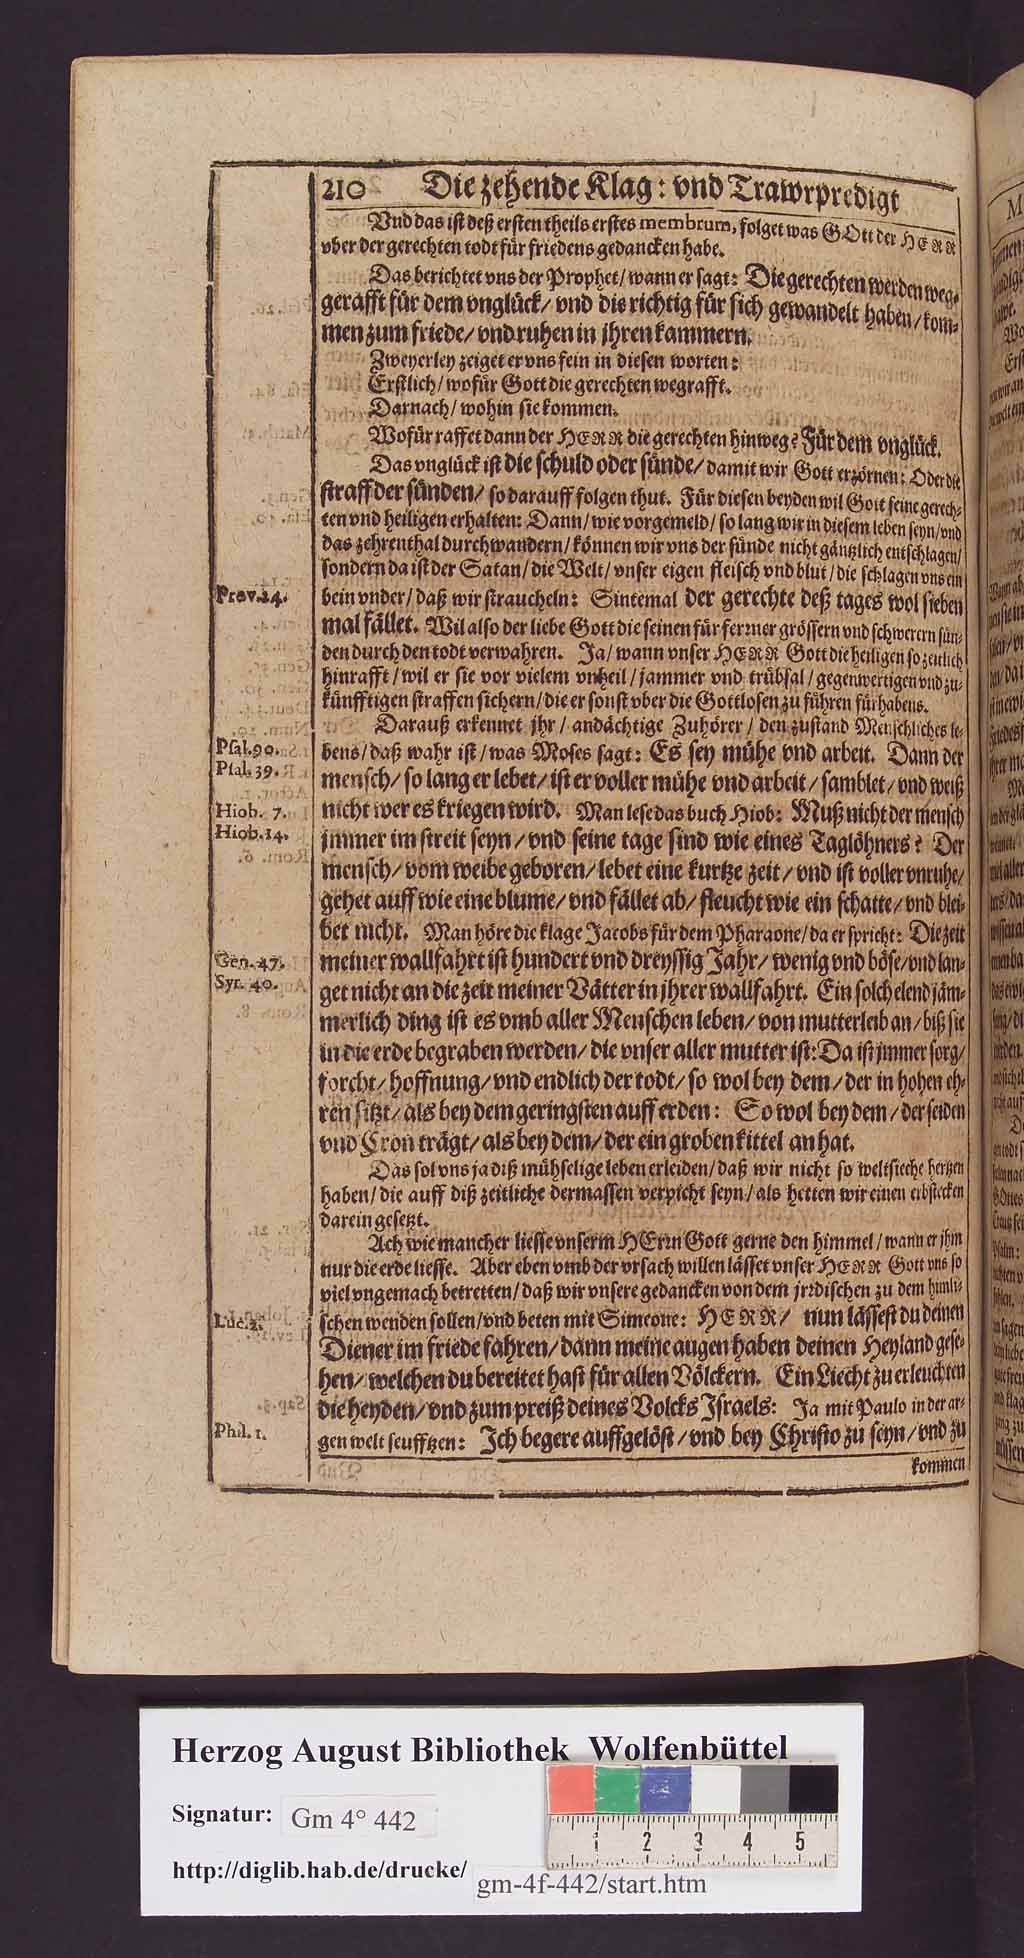 210 Die zehende Klag: vnd Trawrpredigt
Vnd das ist deß ersten theils erstes membrum, folget was GOtt der HERR
vber der gerechten todt für friedens gedancken habe.
Das berichtet vns der Prophet/ wann er sagt: Die gerechten werden weg-
gerafft für dem vnglück/ vnd die richtig für sich gewandelt haben/ kom-
men zum friede/ vnd ruhen in jhren kammern.
Zweyerley zeiget er vns fein in diesen worten:
Erstlich/ wofür Gott die gerechten wegrafft.
Darnach/ wohin sie kommen.
Wofür raffet dann der HERR die gerechten hinweg? Für dem vnglück.
Das vnglück ist die schuld oder sünde/ damit wir Gott erzörnen: Oder die
straff der sünden/ so darauff folgen thut. Für diesen beyden wil Gott seine gerech-
ten vnd heiligen erhalten: Dann/ wie vorgemeld/ so lang wir in diesem leben seyn/ vnd
das zehrenthal durchwandern/ können wir vns der sünde nicht gäntzlich entschlagen/
sondern da ist der Satan/ die Welt/ vnser eigen fleisch vnd blut/ die schlagen vns ein
Prov. 24. bein vnder/ daß wir straucheln: Sintemal der gerechte deß tages wol sieben
mal fället. Wil also der liebe Gott die seinen für ferrner grössern vnd schwerern sün-
den durch den todt verwahren. Ja/ wann vnser HERR Gott die heiligen so zeitlich
hinrafft/ wil er sie vor vielem vnheil/ jammer vnd trübsal/ gegenwertigen vnd zu-
künfftigen straffen sichern/ die er sonst vber die Gottlosen zu führen fürhabens.
Darauß erkennet jhr/ andächtige Zuhörer/ den zustand Menschliches le-
Psal. 90. bens/ daß wahr ist/ was Moses sagt: Es sey mühe vnd arbeit. Dann der
Psal. 39. mensch/ so lang er lebet/ ist er voller mühe vnd arbeit/ samblet/ vnd weiß
Hiob. 7. nicht wer es kriegen wird. Man lese das buch Hiob: Muß nicht der mensch
Hiob. 14. jmmer im streit seyn/ vnd seine tage sind wie eines Taglöhners? Der
mensch/ vom weibe geboren/ lebet eine kurtze zeit/ vnd ist voller vnruhe/
gehet auff wie eine blume/ vnd fället ab/ fleucht wie ein schatte/ vnd blei-
bet nicht. Man höre die klage Jacobs für dem Pharaone/ da er spricht: Die zeit
Gen. 47. meiner wallfahrt ist hundert vnd dreyssig Jahr/ wenig vnd böse/ vnd lan-
Syr. 40. get nicht an die zeit meiner Vätter in jhrer wallfahrt. Ein solch elend jäm-
merlich ding ist es vmb aller Menschen leben/ von mutterleib an/ biß sie
in die erde begraben werden/ die vnser aller mutter ist: Da ist jmmer sorg/
forcht/ hoffnung/ vnd endlich der todt/ so wol bey dem/ der in hohen eh-
ren sitzt/ als bey dem geringsten auff erden: So wol bey dem/ der seiden
vnd Cron trägt/ als bey dem/ der ein groben kittel an hat.
Das sol vns ja diß mühselige leben erleiden/ daß wir nicht so weltsieche hertzen
haben/ die auff diß zeitliche dermassen verpicht seyn/ als hetten wir einen erbstecken
darein gesetzt.
Ach wie mancher liesse vnserm HErrn Gott gerne den himmel/ wann er jhm
nur die erde liesse. Aber eben vmb der vrsach willen lässet vnser HERR Gott vns so
viel vngemach betretten/ daß wir vnsere gedancken von dem jrrdischen zu dem himli-
Luc. 2. schen wenden sollen/ vnd beten mit Simeone: HERR/ nun lässest du deinen
Diener im friede fahren/ dann meine augen haben deinen Heyland gese-
hen/ welchen du bereitet hast für allen Völckern. Ein Liecht zu erleuchten
die heyden/ vnd zum preiß deines Volcks Israels: Ja mit Paulo in der ar-
Phil. 1. gen welt seufftzen: Ich begere auffgelöst/ vnd bey Christo zu seyn/ vnd zu
kommen
Herzog August Bibliothek Wolfenbüttel
Signatur: Gm 4° 442
http://diglib.hab.de/drucke/ gm-4f-442/start.htm
1 2 3 4 5